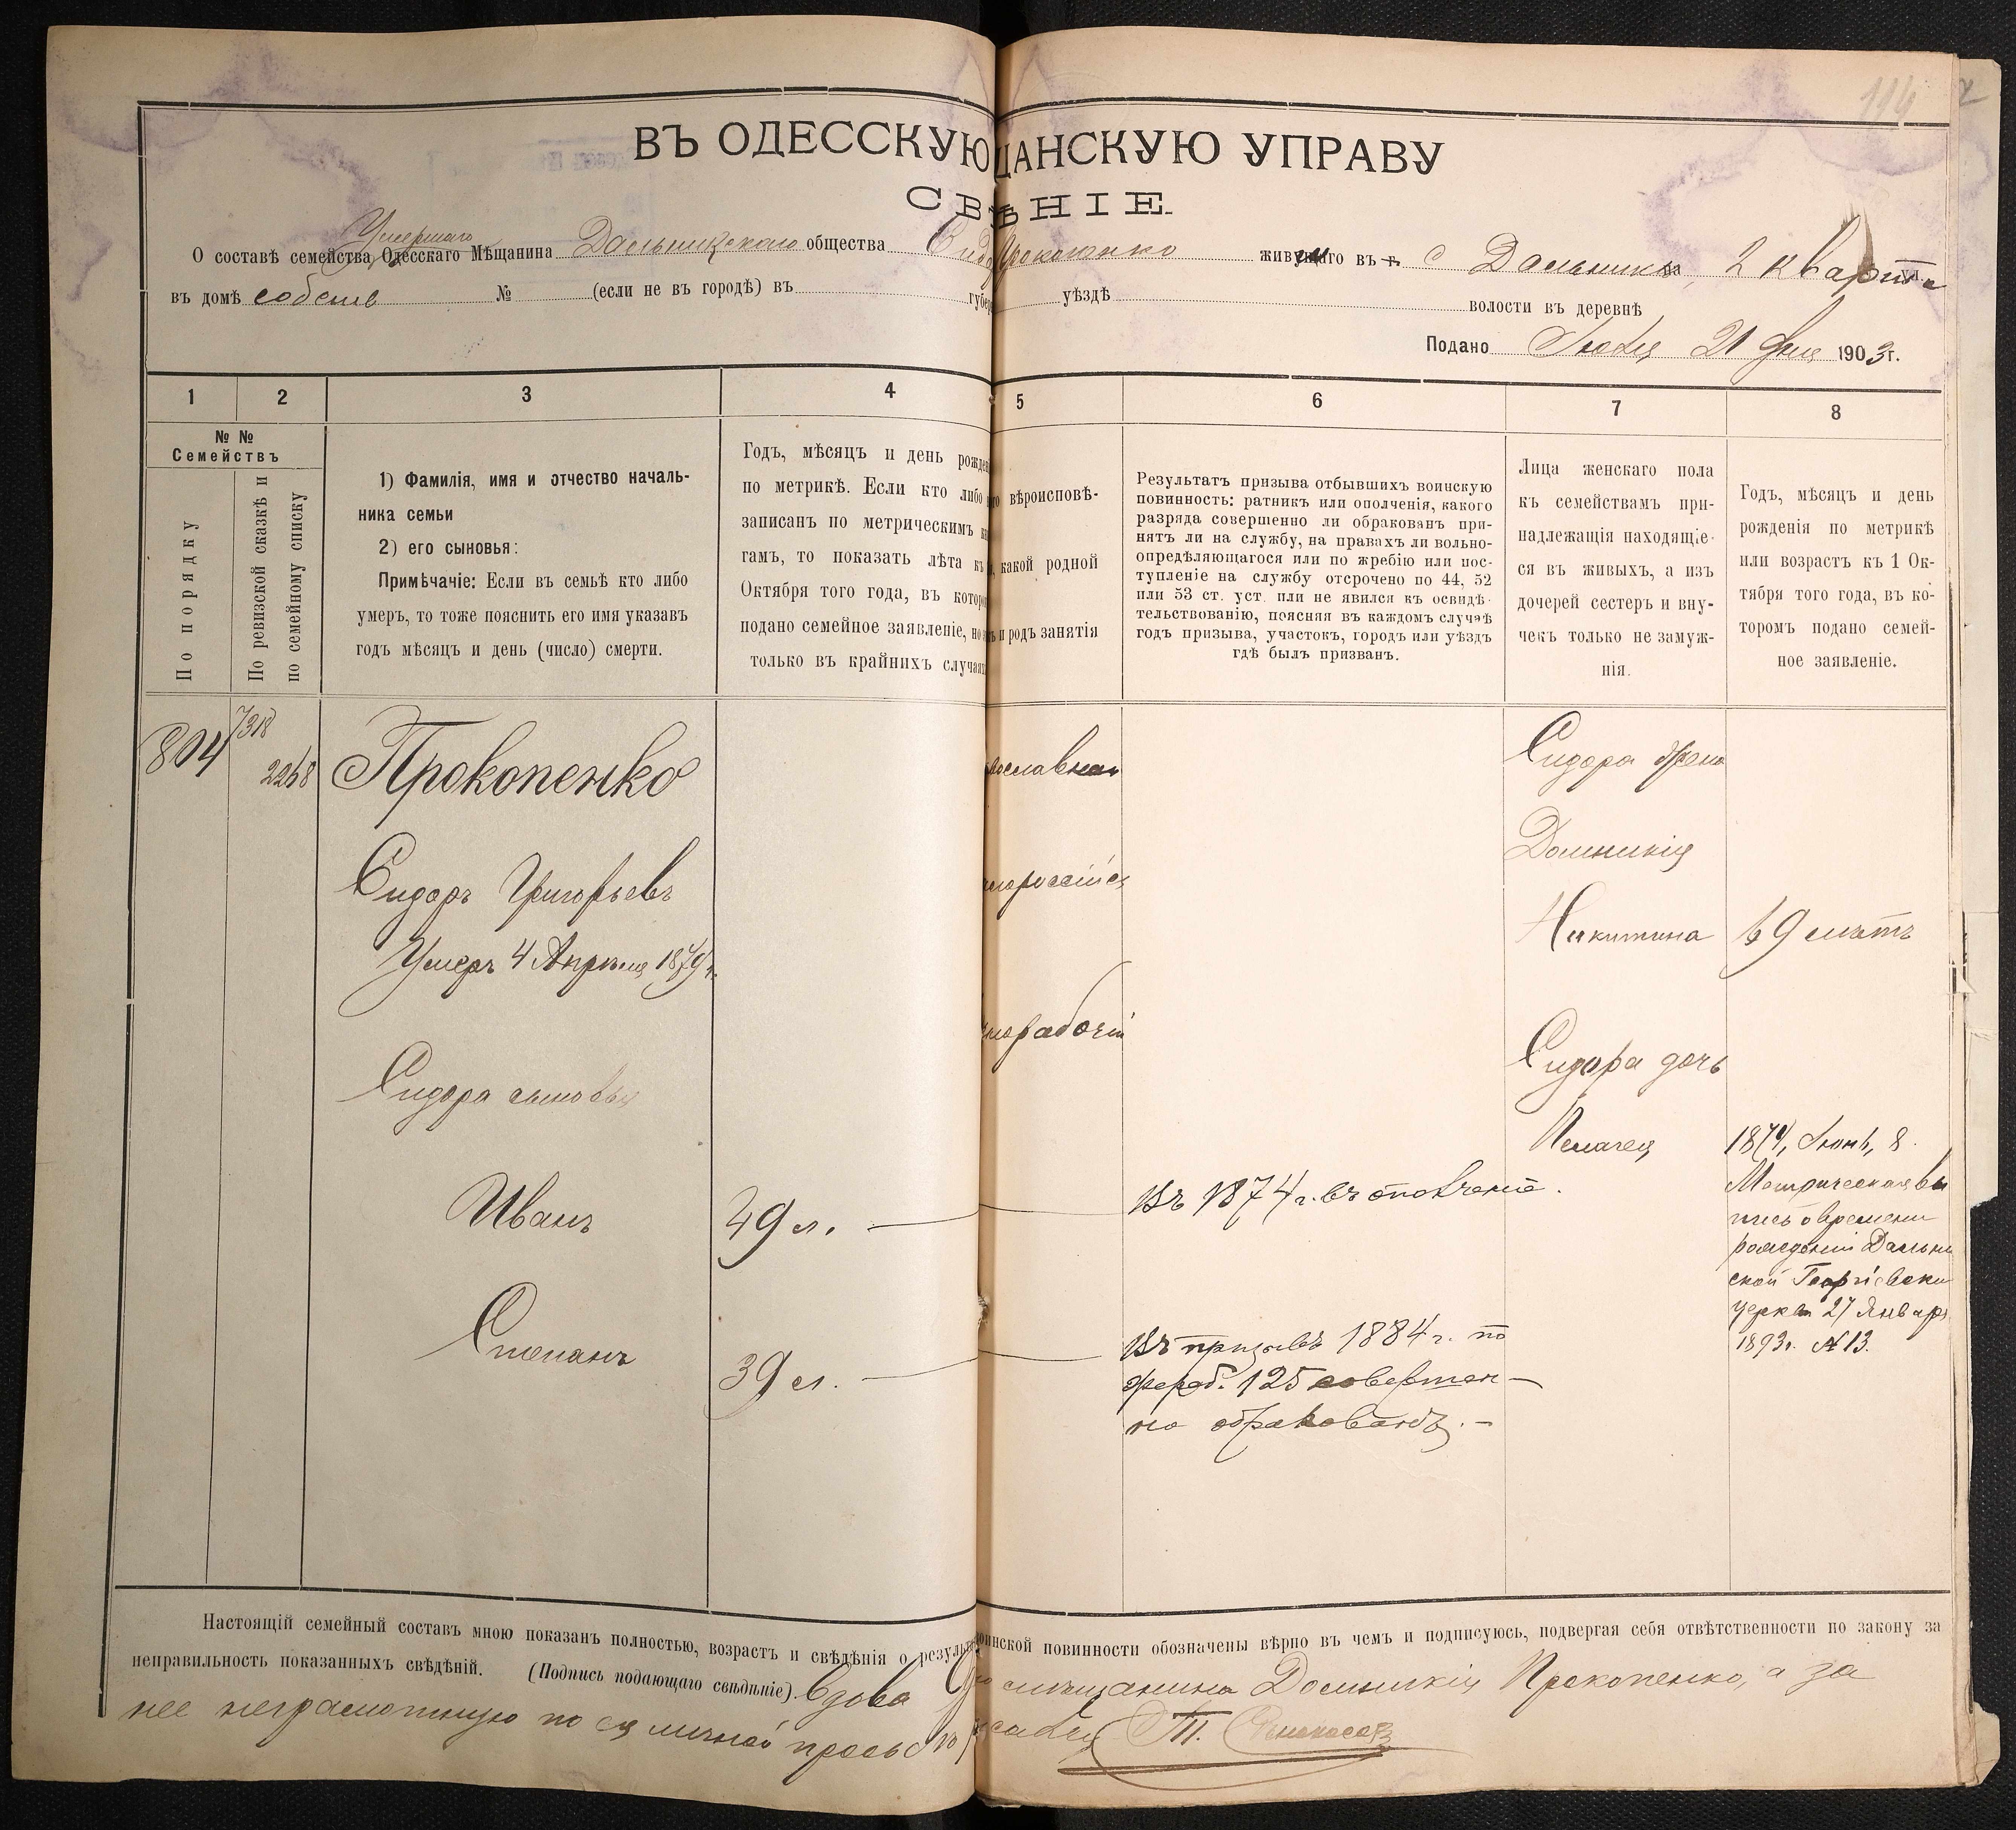 114
ВЪ ОДЕССКУЮ ЩАНСКУЮ УПРАВУ
СВѢНІЕ.
Умершаго
О составѣ семейства Одесскаго Мѣщанина Дальницкаго общества Сидо Прокопенко живущаго въ г. с Дальникъ на 2 кварта ул.
въ домѣ собств № (если не въ городѣ) въ губер уѣздѣ волости въ деревнѣ
Подано Іюля 21 дня 1903 г.
1 2 3 4 5 6 7 8
№ №
Семействъ
По порядку
По ревизской сказкѣ и
по семейному списку
1) Фамилія, имя и отчество началь-
ника семьи
2) его сыновья:
Примѣчаніе: Если въ семьѣ кто либо
умеръ, то тоже пояснить его имя указавъ
годъ мѣсяцъ и день (число) смерти.
Годъ, мѣсяцъ и день рожде
по метрикѣ. Если кто либо
записанъ по метрическимъ к
гамъ, то показать лѣта къ
Октября того года, въ котор
подано семейное заявленіе, но
только въ крайнихъ случая
вѣроисповѣ-
какой родной
и родъ занятія
Результатъ призыва отбывшихъ воинскую
повинность: ратникъ или ополченія, какого
разряда совершенно ли обракованъ при-
нятъ ли на службу, на правахъ ли вольно-
опредѣляющагося или по жребію или пос-
тупленіе на службу отсрочено по 44, 52
или 53 ст. уст. или не явился къ освидѣ-
тельствованію, поясняя въ каждомъ случаѣ
годъ призыва, участокъ, городъ или уѣздъ
гдѣ былъ призванъ.
Лица женскаго пола
къ семействамъ при-
надлежащія находящіе-
ся въ живыхъ, а изъ
дочерей сестеръ и вну-
чекъ только не замуж-
нія.
Годъ, мѣсяцъ и день
рожденія по метрикѣ
или возрастъ къ 1 Ок-
тября того года, въ ко-
торомъ подано семей-
ное заявленіе.
804
7318
2268
Прокопенко
Сидоръ Григорьевъ
Умеръ 4 Апрѣля 1879 г.
Сидора сыновья
Иванъ
49 л.
Степанъ
39 л.
ославная
лороссійск
норабочій
Въ 1874 г. въ ополченіе.
Въ призывъ 1884 г. по
жереб. 125 совершен-
но обракованъ.
Сидора жена
Домникія
Никитина
69 лѣтъ
Сидора дочь
Пелагея
1874, Іюнь, 8.
Метрическая вы
пись о времени
рожденія Дальни
ской Георгіевски
церкви 27 Январ
1893 г. № 13.
Настоящій семейный составъ мною показанъ полностью, возрастъ и свѣдѣнія о резуль воинской повинности обозначены вѣрно въ чемъ и подписуюсь, подвергая себя отвѣтственности по закону за
неправильность показанныхъ свѣдѣній. (Подпись подающаго свѣдѣніе) Вдова мѣщанина Домникія Прокопенко, а за
нее неграмотную по ея личной просьбѣ